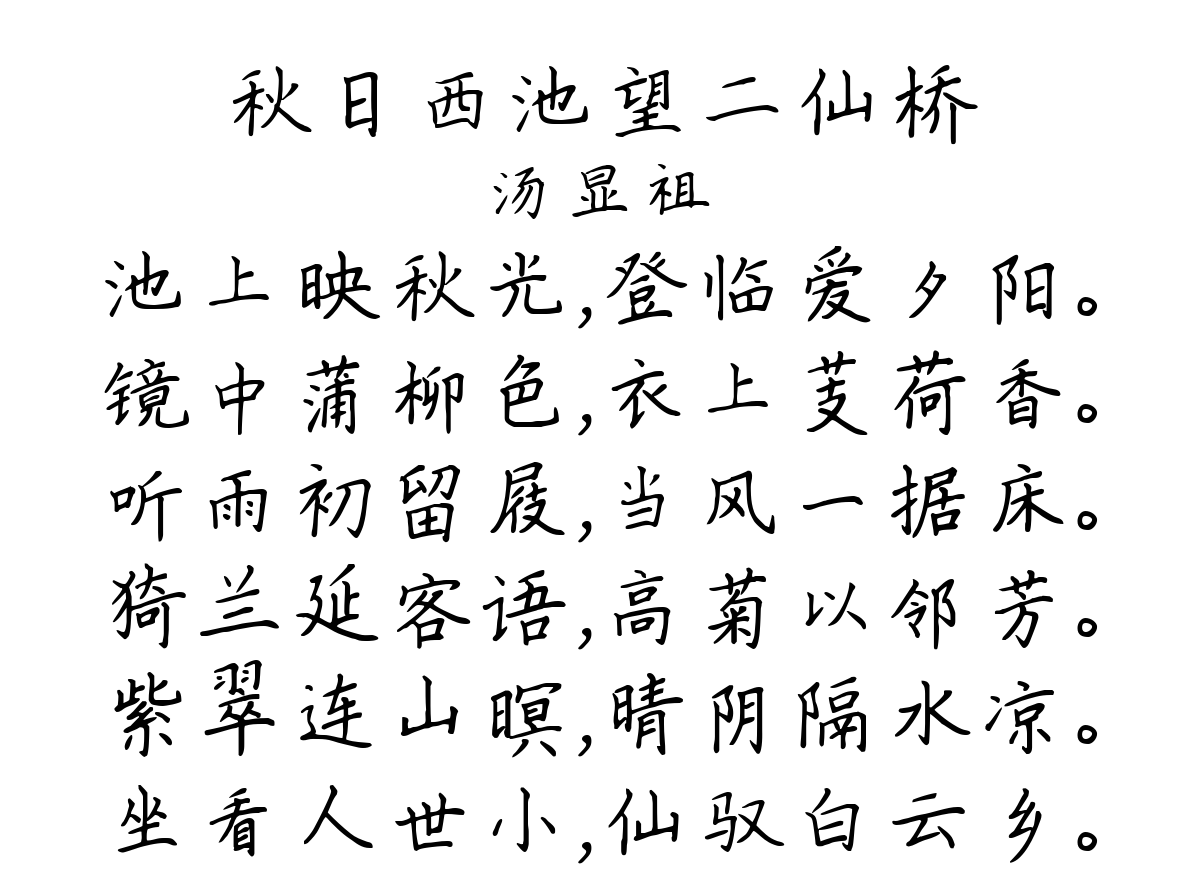 秋日西池望二仙桥
汤显祖
池上映秋光,登临爱夕阳。
镜中蒲柳色,衣上芰荷香。
听雨初留屐,当风一据床。
猗兰延客语,高菊以邻芳。
紫翠连山暝,晴阴隔水凉。
坐看人世小,仙驭白云乡。